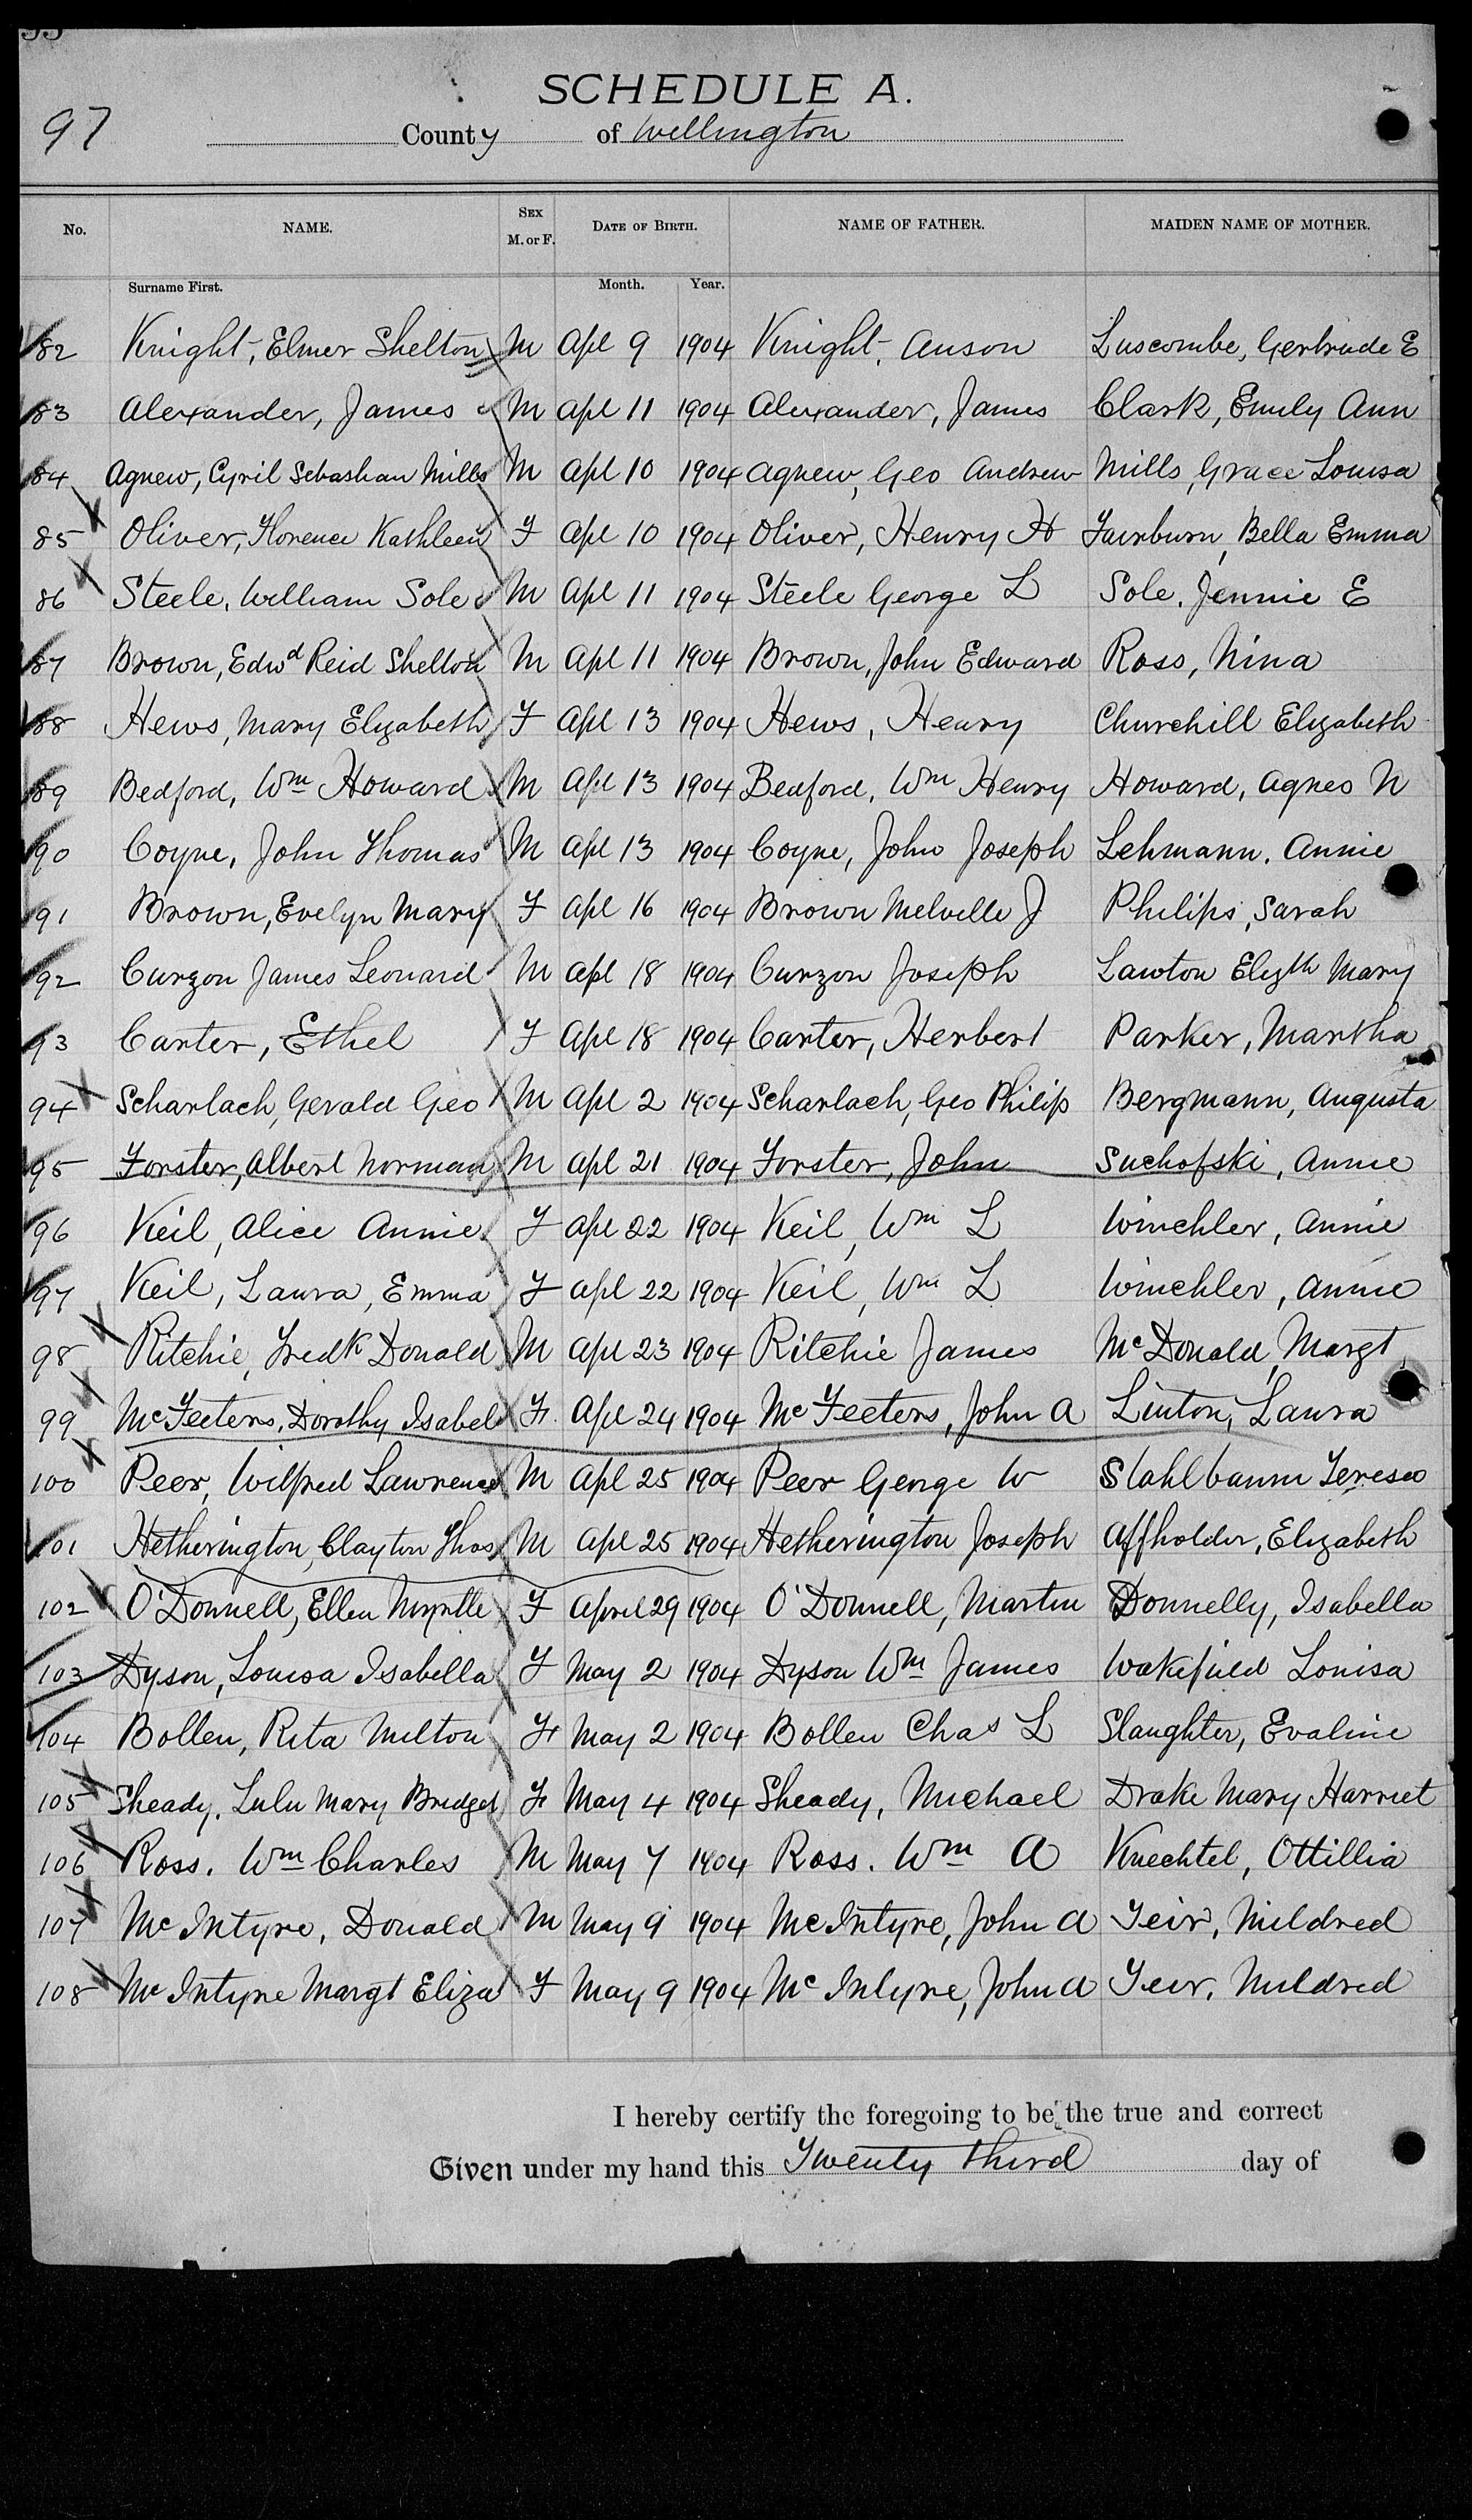 97
SCHEDULE A.
County of Wellington
No. NAME. SEX M. or F. DATE OF BIRTH. NAME OF FATHER. MAIDEN NAME OF MOTHER.
Surname First. Month. Year.
82 Knight, Elmer Shelton M Apl 9 1904 Knight, Anson Luscombe, Gertrude E
83 Alexander, James M Apl 11 1904 Alexander, James Clark, Emily Ann
84 Agnew, Cyril Sebastian Mills M Apl 10 1904 Agnew, Geo Andrew Mills, Grace Louisa
85 Oliver, Florence Kathleen F Apl 10 1904 Oliver, Henry H Fairburn, Bella Emma
86 Steele, William Sole M Apl 11 1904 Steele George L Sole, Jennie E
87 Brown, Edwd Reid Shelton M Apl 11 1904 Brown, John Edward Ross, Nina
88 Hews, Mary Elizabeth F Apl 13 1904 Hews, Henry Churchill Elizabeth
89 Bedford, Wm Howard M Apl 13 1904 Bedford, Wm Henry Howard, Agnes N
90 Coyne, John Thomas M Apl 13 1904 Coyne, John Joseph Lehmann, Annie
91 Brown, Evelyn Mary F Apl 16 1904 Brown Melville J Philips, Sarah
92 Curzon James Leonard M Apl 18 1904 Curzon Joseph Lawton Elizth Mary
93 Carter, Ethel F Apl 18 1904 Carter, Herbert Parker, Martha
94 Scharlach, Gerald Geo M Apl 2 1904 Scharlach, Geo Philip Bergmann, Augusta
95 Forster, Albert Norman M Apl 21 1904 Forster, John Suchofski, Annie
96 Keil, Alice Annie F Apl 22 1904 Keil, Wm L Winchler, Annie
97 Keil, Laura, Emma F Apl 22 1904 Keil, Wm L Winchler, Annie
98 Ritchie, Fredk Donald M Apl 23 1904 Ritchie James McDonald, Margt
99 McFeeters, Dorothy Isabel F. Apl 24 1904 McFeeters, John A Linton, Laura
100 Peer, Wilfred Lawrence M Apl 25 1904 Peer George W Stahlbaum Teresa
101 Hetherington, Clayton Thos M Apl 25 1904 Hetherington Joseph Affholder, Elizabeth
102 O'Donnell, Ellen Myrtle F April 29 1904 O'Donnell, Martin Donnelly, Isabella
103 Dyson, Louisa Isabella F May 2 1904 Dyson Wm James Wakefield Louisa
104 Bollen, Rita Milton F May 2 1904 Bollen Chas L Slaughter, Evaline
105 Sheady, Lulu Mary Bridget F May 4 1904 Sheady, Michael Drake Mary Harriet
106 Ross, Wm Charles M May 7 1904 Ross. Wm A Knechtel, Ottillia
107 McIntyre, Donald M May 9 1904 McIntyre, John A Teir, Mildred
108 McIntyre Margt Eliza F May 9 1904 McIntyre, John A Teir, Mildred
I hereby certify the foregoing to be the true and correct
Given under my hand this Twenty third day of